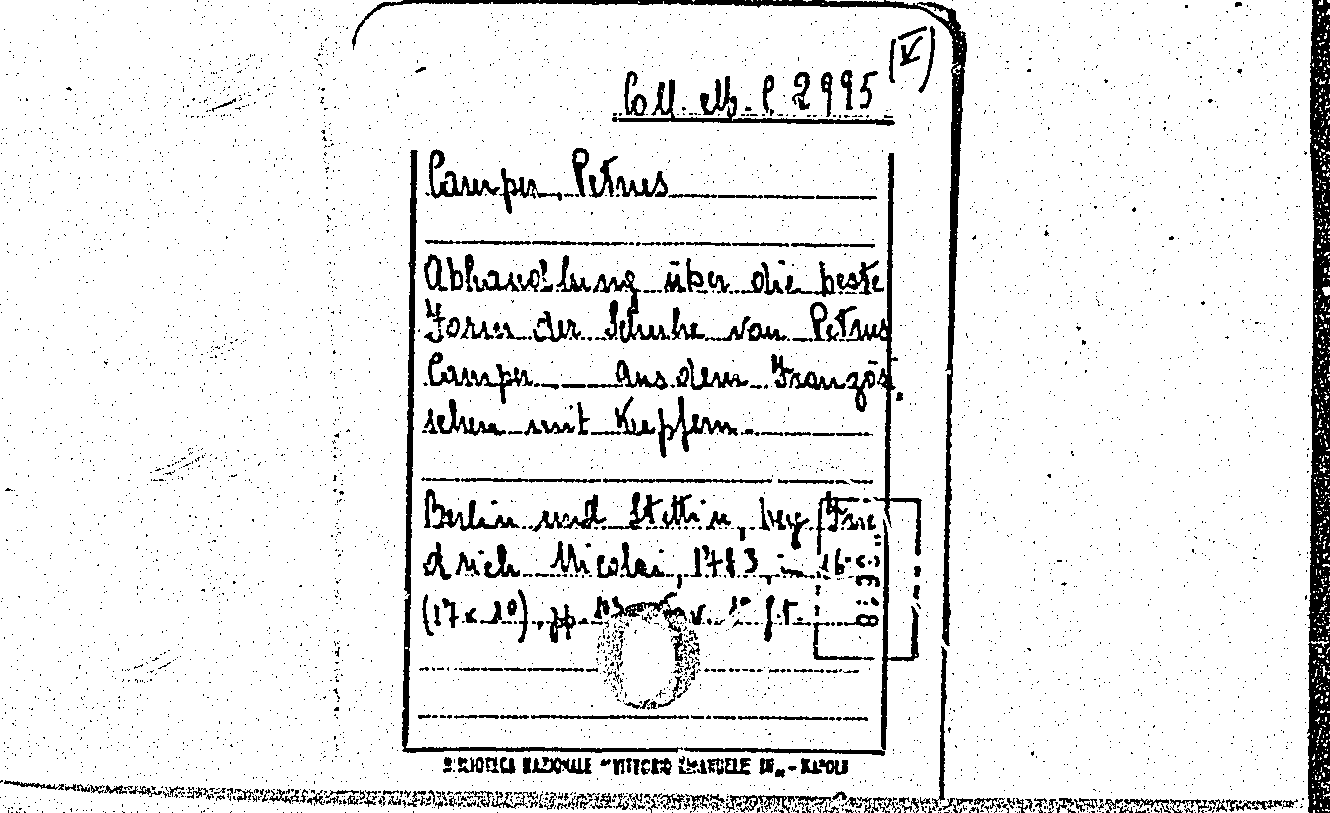 (V)
Coll. alb. C 2995
Camper, Petrus
Abhandlung über die beste
Form der Schuhe von Petrus
Camper Aus dem Französ
schen mit Kupfern.
Berlin und Stettin, bey Frie
drich Nicolai, 1783, in 16°
(17 x 10), pp. tav. 1ª f.t.
BIBLIOTECA NAZIONALE "VITTORIO EMANUELE III" - NAPOLI